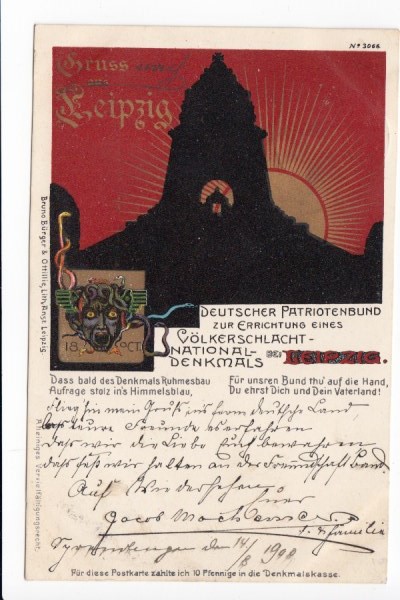 No 3066
Gruss
aus
Leipzig
18. OCT.
Deutscher Patriotenbund
zur Errichtung eines
Völkerschlacht-
National-
Denkmals bei Leipzig.
Dass bald des Denkmals Ruhmesbau
Aufrage stolz in's Himmelsblau,
Für unsren Bund thu' auf die Hand,
Du ehrst Dich und Dein Vaterland!
Flieg hin mein Gruß ins ferne deutsche Land
laß teure Freunde es erfahren
daß wir die Liebe bewahren
daß fest wir halten an der Freundschaft Band.
Auf Wiedersehen
Jacob
u. Familie
den 14/8 1900
Für diese Postkarte zahlte ich 10 Pfennige in die Denkmalskasse.
Bruno Bürger & Ottilie, Lith. Anst. Leipzig.
Alleiniges Vervielfältigungsrecht.